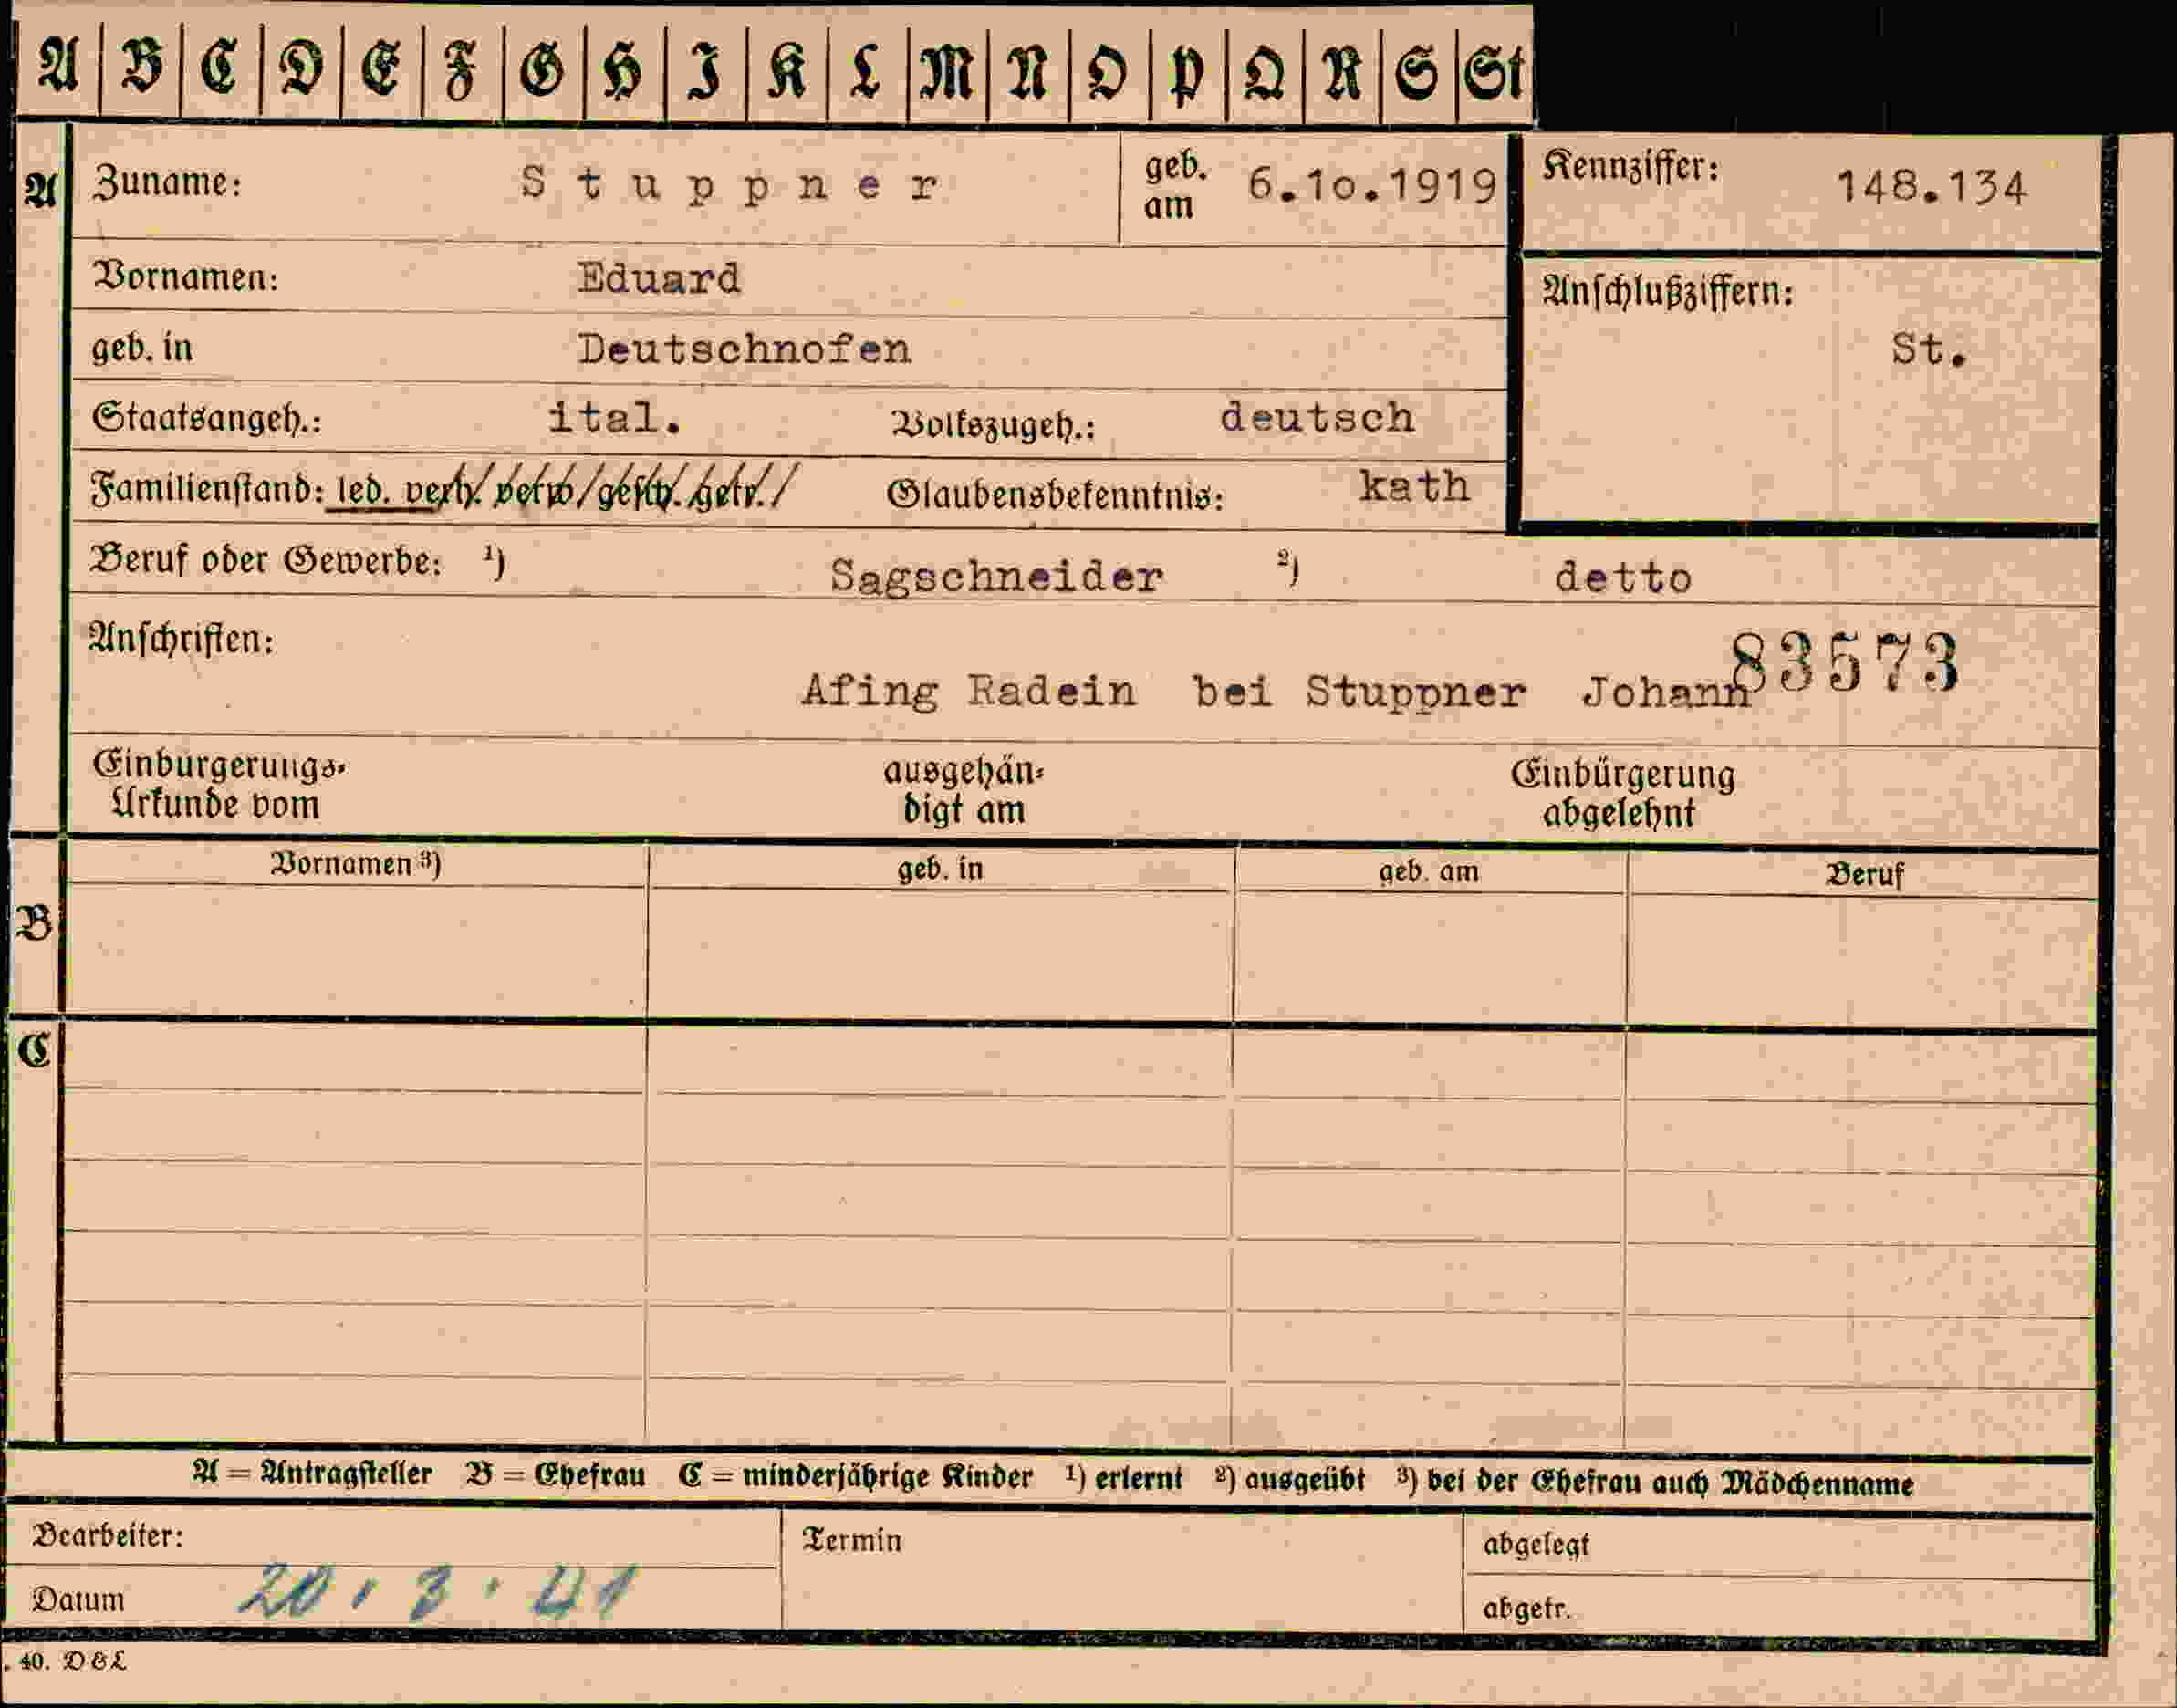 A B C D E F G H I K L M N O P Q R S St
A Zuname: Stuppner geb. am 6.10.1919 Kennziffer: 148.134
Vornamen: Eduard Anschlußziffern:
geb. in Deutschnofen St.
Staatsangeh.: ital. Volkszugeh.: deutsch
Familienstand: led. verh. verw. gesch. getr. Glaubensbekenntnis: kath
Beruf oder Gewerbe: 1) Sagschneider 2) detto
Anschriften: 83573
Afing Radein bei Stuppner Johann
Einbürgerungs- ausgehän- Einbürgerung
Urkunde vom digt am abgelehnt
Vornamen 3) geb. in geb. am Beruf
B
C
A = Antragsteller B = Ehefrau C = minderjährige Kinder 1) erlernt 2) ausgeübt 3) bei der Ehefrau auch Mädchenname
Bearbeiter: Termin abgelegt
Datum 20.3.41 abgetr.
. 40. D & L